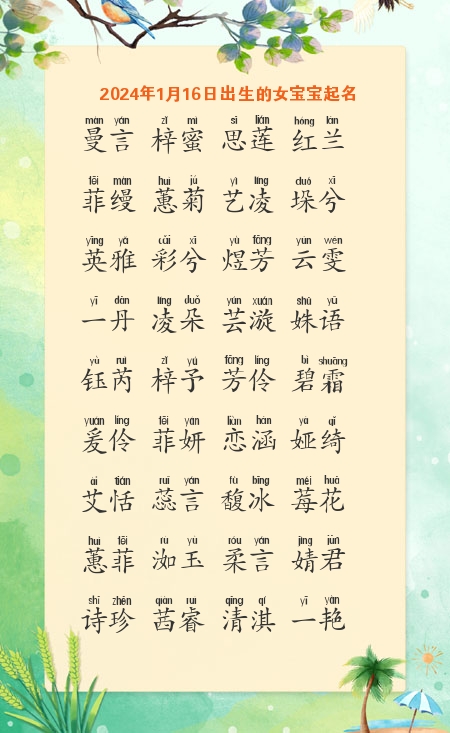 2024年1月16日出生的女宝宝起名
màn yán zǐ mì sī lián hóng lán
曼言 梓蜜 思莲 红兰
fēi màn huì jú yì líng duǒ xī
菲缦 蕙菊 艺凌 垛兮
yīng yǎ cǎi xī yù fāng yún wén
英雅 彩兮 煜芳 云雯
yī dān líng duǒ yún xuán shū yǔ
一丹 凌朵 芸漩 姝语
yù ruì zǐ yú fāng líng bì shuāng
钰芮 梓予 芳伶 碧霜
yuán líng fēi yán liàn hán yà qǐ
爰伶 菲妍 恋涵 娅绮
ài tián ruǐ yán fù bīng méi huā
艾恬 蕊言 馥冰 莓花
huì fēi rù yù róu yán jìng jūn
蕙菲 洳玉 柔言 婧君
shī zhēn qiàn ruì qīng qí yī yàn
诗珍 茜睿 清淇 一艳